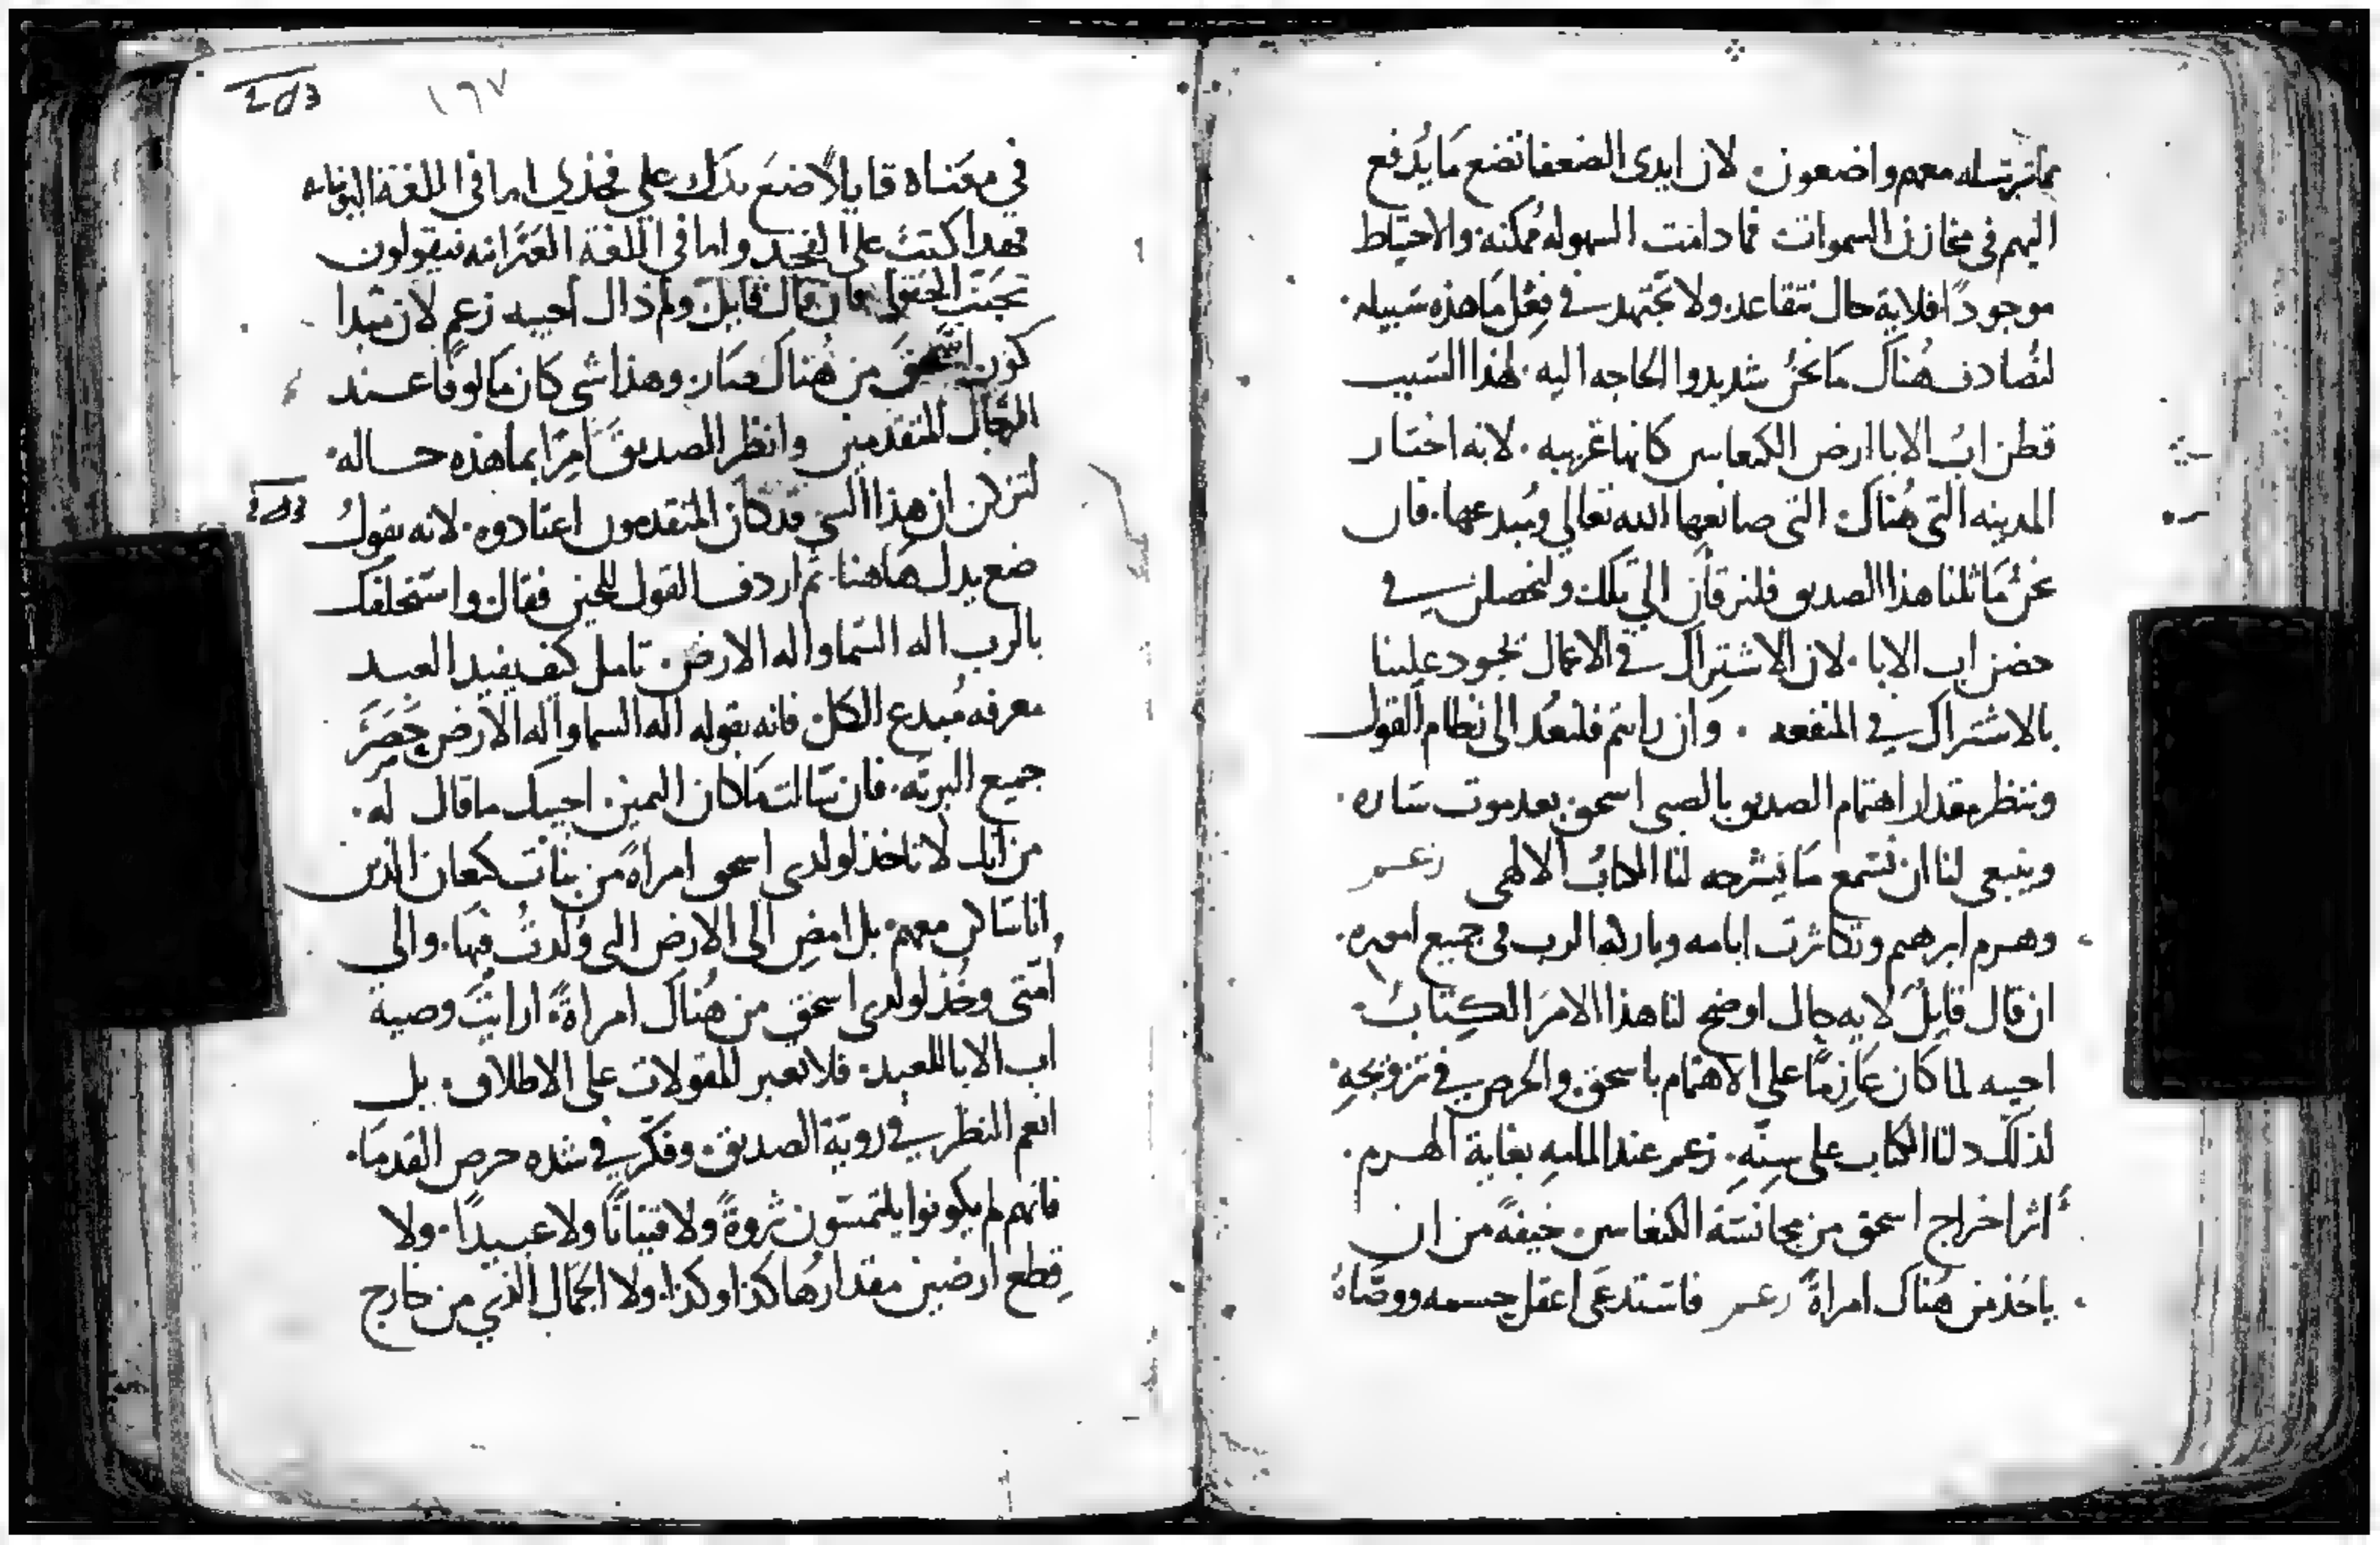 معهم واضعون. لان ايدى الضعفا تضع مَا يُدفع
اليهم فى مخازن السموات فما دامت السهوله مُمكنه والاحتياط
موجودًا فلاية حال نتقاعد ولا نجتهد في فِعْل مَا هذه سَبيله.
لنُصَادف هُناك مَا نحنُ شديدوا الحاجه اليه. لهذا السَبب
قطن ابُ الابا ارض الكنعانيين كانها غريبه. لانه اختار
المدينه التى هُناك التى صانعها الله تعالي ومُبدعها. فان
نحنُ مَاثلنا هذا الصديق فلنرقأن الي تلك ولنحصلن في
حضن اب الابا. لان الاشتراك في الاعمال يجود علينا
بالاشتراك في المنفعه. وان رايتم فلنعُد الى نظام القول
وننظر مقدار اهتمام الصديق بالصبى اسحق بعد موت سَاره.
وينبغى لنا ان نستمع مَا يَشرحه لنا الكتابُ الالهى زعم
وهرم ابرهيم وتكاثرت ايامه وبارك الرب فى جميع اموره.
ان قال قايلٌ لايه حال اوضح لنا هذا الامرَ الكِتابُ.
اجيبه لما كان عَازمًا على الاهتمام باسحق والحرص في تزويجهِ
لذلك دلنا الكتاب على سِنّهِ. زعم عند بغاية الهرم.
اثر اخراج اسحق من مجانسَة الكنعانيين. خيفةً من ان
ياخذ من هُناك امراةً زعم فاستدعَى اعقل حسمه ووصَّاهُ
١٩٧
في معَناه قايلًا ضعَ يدَك علي فخذي اما في اللغة اليونانيه
فهكذا كتبت على الفخد واما في اللغة العَبرانيه فيقولون
تحتَ الحَقو. فان قال قايل ولم ذاك اجيبه زعم لان مبدا
كَون اسحَق من هُناك صَار. وهذا شى كان مَالوفًا عند
الرجال المتقدمين وانظر الصديقَ امِرًا بما هذه حاله.
لتركن ان هذا الشى قد كان المتقدمون اعتادوه. لانه يقولُ
ضع يدك هَاهنا. ثم اردف القول للحين فقال واستحلفك
بالرب اله السَما واله الارض. تامل كيف يفيد العبد
معرفه مُبدع الكل. فانه بقوله اله السما واله الارض حَصَرَ
جميع البريَّه. فان سَالت مَا كان اليمين. اجيبك ما قال له.
من انك لا تاخذ لولدى اسحق امراةً من بنات كنعان الذين
انا سَاكن معهم. بل امضِ الى الارض التى وُلدتُ فيهَا. والي
اُمتى وخُذ لولدى اسحق من هُناك امراةً. ارايتَ وصية
اب الابا للعبد. فلا تعبر المقولات على الاطلاق. بل
انعم النظر في روية الصديق. وفكّر في شده حرص القدمَا.
فانهم لم يكونوا يلتمسَون ثروةً ولا قنيانًا ولا عبيدًا. ولا
قِطع ارضين مقدارُها كذا وكذا. ولا الجمال الذي من خارج